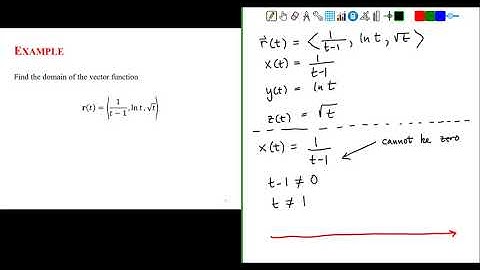 EXAMPLE
Find the domain of the vector function
r(t) = ⟨1/(t − 1), ln t, √t⟩
r⃗(t) = ⟨1/(t-1), ln t, √t⟩
x(t) = 1/(t-1)
y(t) = ln t
z(t) = √t
x(t) = 1/(t-1) cannot be zero
t-1 ≠ 0
t ≠ 1